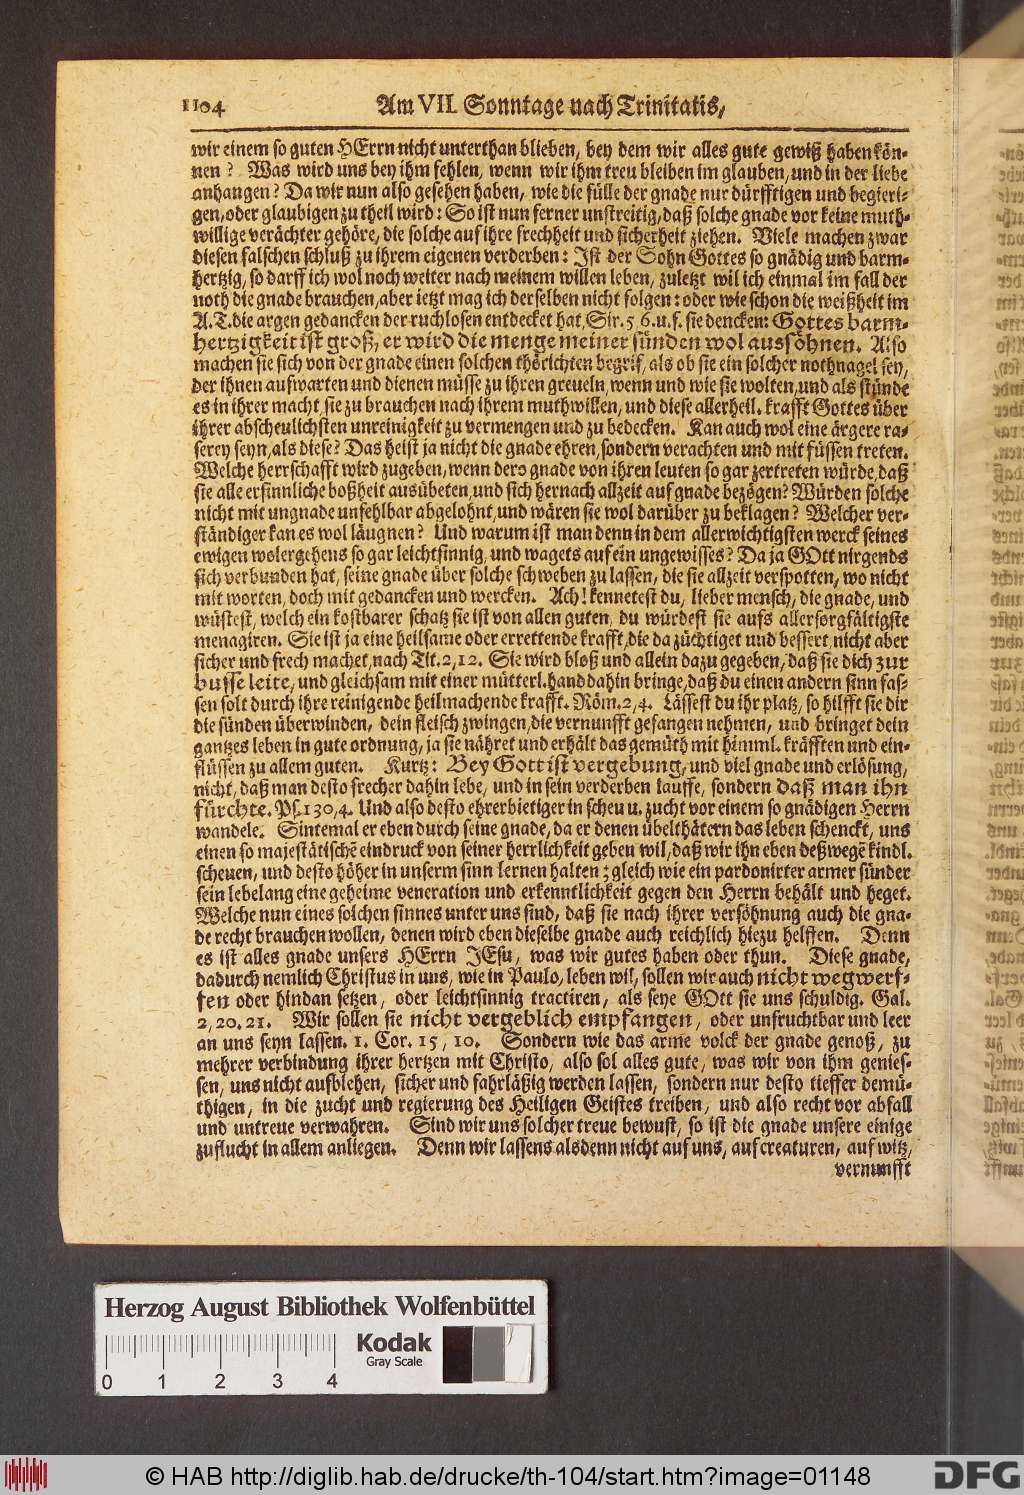 1104 Am VII. Sonntage nach Trinitatis,
wir einem so guten HErrn nicht unterthan blieben, bey dem wir alles gute gewiß haben kön-
nen? Was wird uns bey ihm fehlen, wenn wir ihm treu bleiben im glauben, und in der liebe
anhangen? Da wir nun also gesehen haben, wie die fülle der gnade nur dürfftigen und begieri-
gen, oder glaubigen zu theil wird: So ist nun ferner unstreitig, daß solche gnade vor keine muth-
willige verächter gehöre, die solche auf ihre frechheit und sicherheit ziehen. Viele machen zwar
diesen falschen schluß zu ihrem eigenen verderben: Ist der Sohn Gottes so gnädig und barm-
hertzig, so darff ich wol noch weiter nach meinem willen leben, zuletzt wil ich einmal im fall der
noth die gnade brauchen, aber ietzt mag ich derselben nicht folgen: oder wie schon die weißheit im
A. T. die argen gedancken der ruchlosen entdecket hat, Sir. 5, 6. u. f. sie dencken: Gottes barm-
hertzigkeit ist groß, er wird die menge meiner sünden wol aussöhnen. Also
machen sie sich von der gnade einen solchen thörichten begrif, als ob sie ein solcher nothnagel sey,
der ihnen aufwarten und dienen müsse zu ihren greueln, wenn und wie sie wolten, und als stünde
es in ihrer macht, sie zu brauchen nach ihrem muthwillen, und diese allerheil. krafft Gottes über
ihrer abscheulichsten unreinigkeit zu vermengen und zu bedecken. Kan auch wol eine ärgere ra-
serey seyn, als diese? Das heist ja nicht die gnade ehren, sondern verachten und mit füssen treten.
Welche herrschafft wird zugeben, wenn ders gnade von ihren leuten so gar zertreten würde, daß
sie alle ersinnliche boßheit ausübeten, und sich hernach allzeit auf gnade bezögen? Würden solche
nicht mit ungnade unfehlbar abgelohnt, und wären sie wol darüber zu beklagen? Welcher ver-
ständiger kan es wol läugnen? Und warum ist man denn in dem allerwichtigsten werck seines
ewigen wolergehens so gar leichtsinnig, und wagets auf ein ungewisses? Da ja GOtt nirgends
sich verbunden hat, seine gnade über solche schweben zu lassen, die sie allzeit verspotten, wo nicht
mit worten, doch mit gedancken und wercken. Ach! kennetest du, lieber mensch, die gnade, und
wüstest, welch ein kostbarer schatz sie ist von allen guten, du würdest sie aufs allersorgfältigste
menagiren. Sie ist ja eine heilsame oder errettende krafft, die da züchtiget und bessert, nicht aber
sicher und frech machet, nach Tit. 2, 12. Sie wird bloß und allein dazu gegeben, daß sie dich zur
busse leite, und gleichsam mit einer mütterl. hand dahin bringe, daß du einen andern sinn fas-
sen solt durch ihre reinigende heilmachende krafft. Röm. 2, 4. Lässest du ihr platz, so hilfft sie dir
die sünden überwinden, dein fleisch zwingen, die vernunfft gefangen nehmen, und bringet dein
gantzes leben in gute ordnung, ja sie nähret und erhält das gemüth mit himml. kräfften und ein-
flüssen zu allem guten. Kurtz: Bey Gott ist vergebung, und viel gnade und erlösung,
nicht, daß man desto frecher dahin lebe, und in sein verderben lauffe, sondern daß man ihn
fürchte. Ps. 130, 4. Und also desto ehrerbietiger in scheu u. zucht vor einem so gnädigen Herrn
wandele. Sintemal er eben durch seine gnade, da er denen übelthätern das leben schenckt, uns
einen so majestätischē eindruck von seiner herrlichkeit geben wil, daß wir ihn eben deßwegē kindl.
scheuen, und desto höher in unserm sinn lernen halten; gleich wie ein pardonirter armer sünder
sein lebelang eine geheime veneration und erkenntlichkeit gegen den Herrn behält und heget.
Welche nun eines solchen sinnes unter uns sind, daß sie nach ihrer versöhnung auch die gna-
de recht brauchen wollen, denen wird eben dieselbe gnade auch reichlich hiezu helffen. Denn
es ist alles gnade unsers HErrn JEsu, was wir gutes haben oder thun. Diese gnade,
dadurch nemlich Christus in uns, wie in Paulo, leben wil, sollen wir auch nicht wegwerf-
fen oder hindan setzen, oder leichtsinnig tractiren, als seye GOtt sie uns schuldig. Gal.
2, 20. 21. Wir sollen sie nicht vergeblich empfangen, oder unfruchtbar und leer
an uns seyn lassen. 1. Cor. 15, 10. Sondern wie das arme volck der gnade genoß, zu
mehrer verbindung ihrer hertzen mit Christo, also sol alles gute, was wir von ihm genies-
sen, uns nicht aufblehen, sicher und fahrläßig werden lassen, sondern nur desto tieffer demü-
thigen, in die zucht und regierung des Heiligen Geistes treiben, und also recht vor abfall
und untreue verwahren. Sind wir uns solcher treue bewust, so ist die gnade unsere einige
zuflucht in allem anliegen. Denn wir lassens alsdenn nicht auf uns, auf creaturen, auf witz,
vernunfft
Herzog August Bibliothek Wolfenbüttel
Kodak
Gray Scale
0 1 2 3 4
© HAB http://diglib.hab.de/drucke/th-104/start.htm?image=01148
DFG